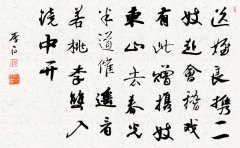 送姪良携二
妓赴會稽戲
有此贈携妓
東山去春光
半道催遥看
若桃李雙入
鏡中開